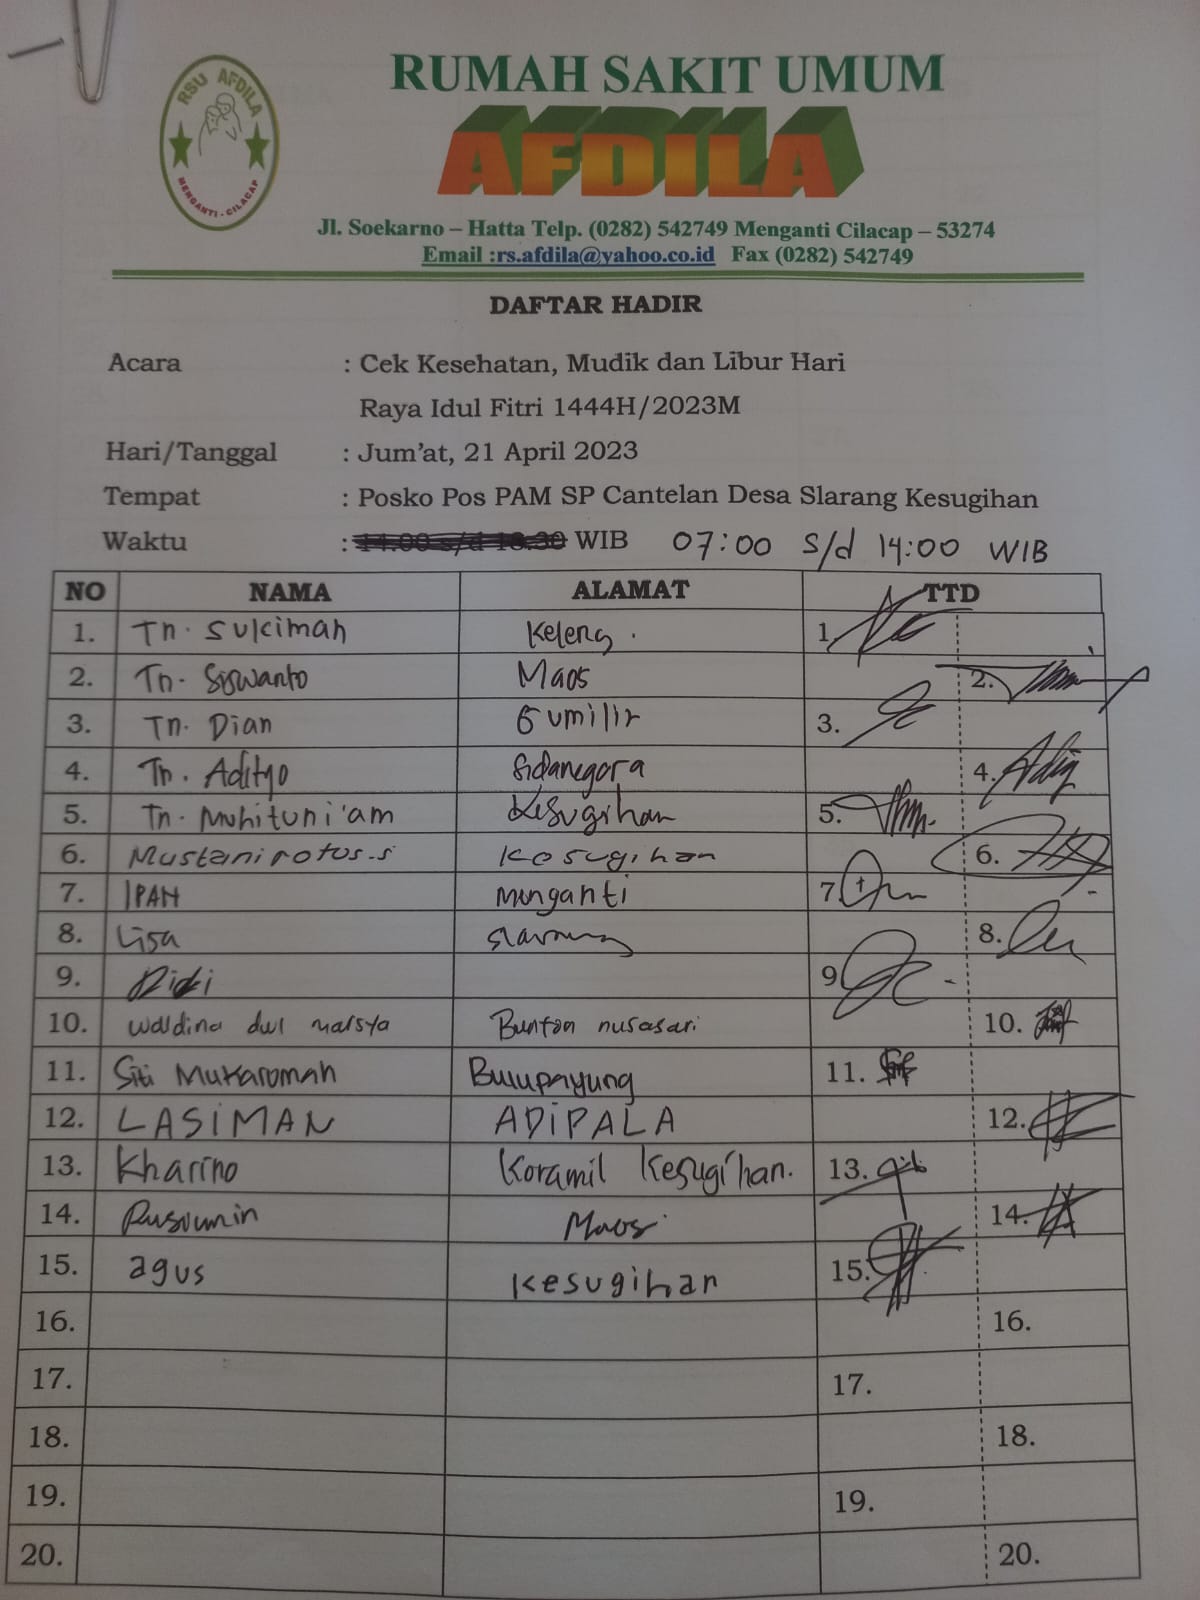 RSU AFDILA
MENGANTI - CILACAP
RUMAH SAKIT UMUM
AFDILA
Jl. Soekarno – Hatta Telp. (0282) 542749 Menganti Cilacap – 53274
Email :rs.afdila@yahoo.co.id Fax (0282) 542749
DAFTAR HADIR
Acara : Cek Kesehatan, Mudik dan Libur Hari
Raya Idul Fitri 1444H/2023M
Hari/Tanggal : Jum'at, 21 April 2023
Tempat : Posko Pos PAM SP Cantelan Desa Slarang Kesugihan
Waktu : 14.00 s/d 18.30 WIB 07:00 s/d 14:00 WIB
NO NAMA ALAMAT TTD
1. Tn. Sukiman Keleng. 1.
2. Tn. Siswanto Maos 2.
3. Tn. Dian Gumilir 3.
4. Tn. Adityo Sidanegara 4.
5. Tn. Muhituni'am Kesugihan 5.
6. Kesugihan 6.
7. IPAN Menganti 7.
8. Lisa Slarang 8.
9. Didi 9.
10. dwi Bunton nusasari 10.
11. Siti Mukaromah Bulupayung 11.
12. LASIMAN ADIPALA 12.
13. Kharino Koramil Kesugihan. 13.
14. Rusumin Maos 14.
15. agus Kesugihan 15.
16. 16.
17. 17.
18. 18.
19. 19.
20. 20.